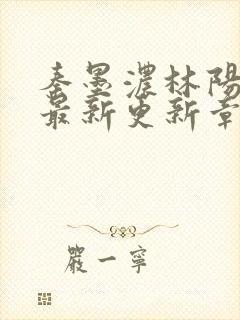 秦墨濃林陽
最新更新章
嚴一寧